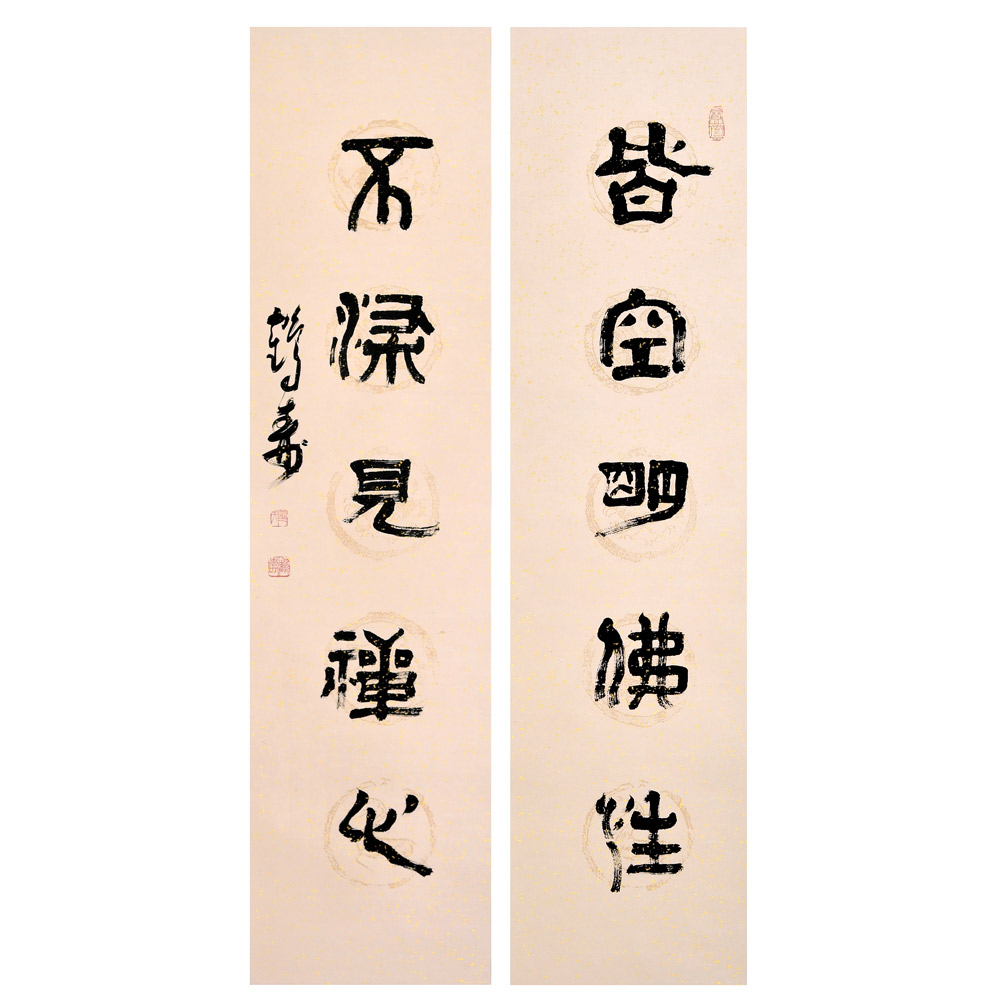 皆空明佛性
不染見禪心
鶴壽